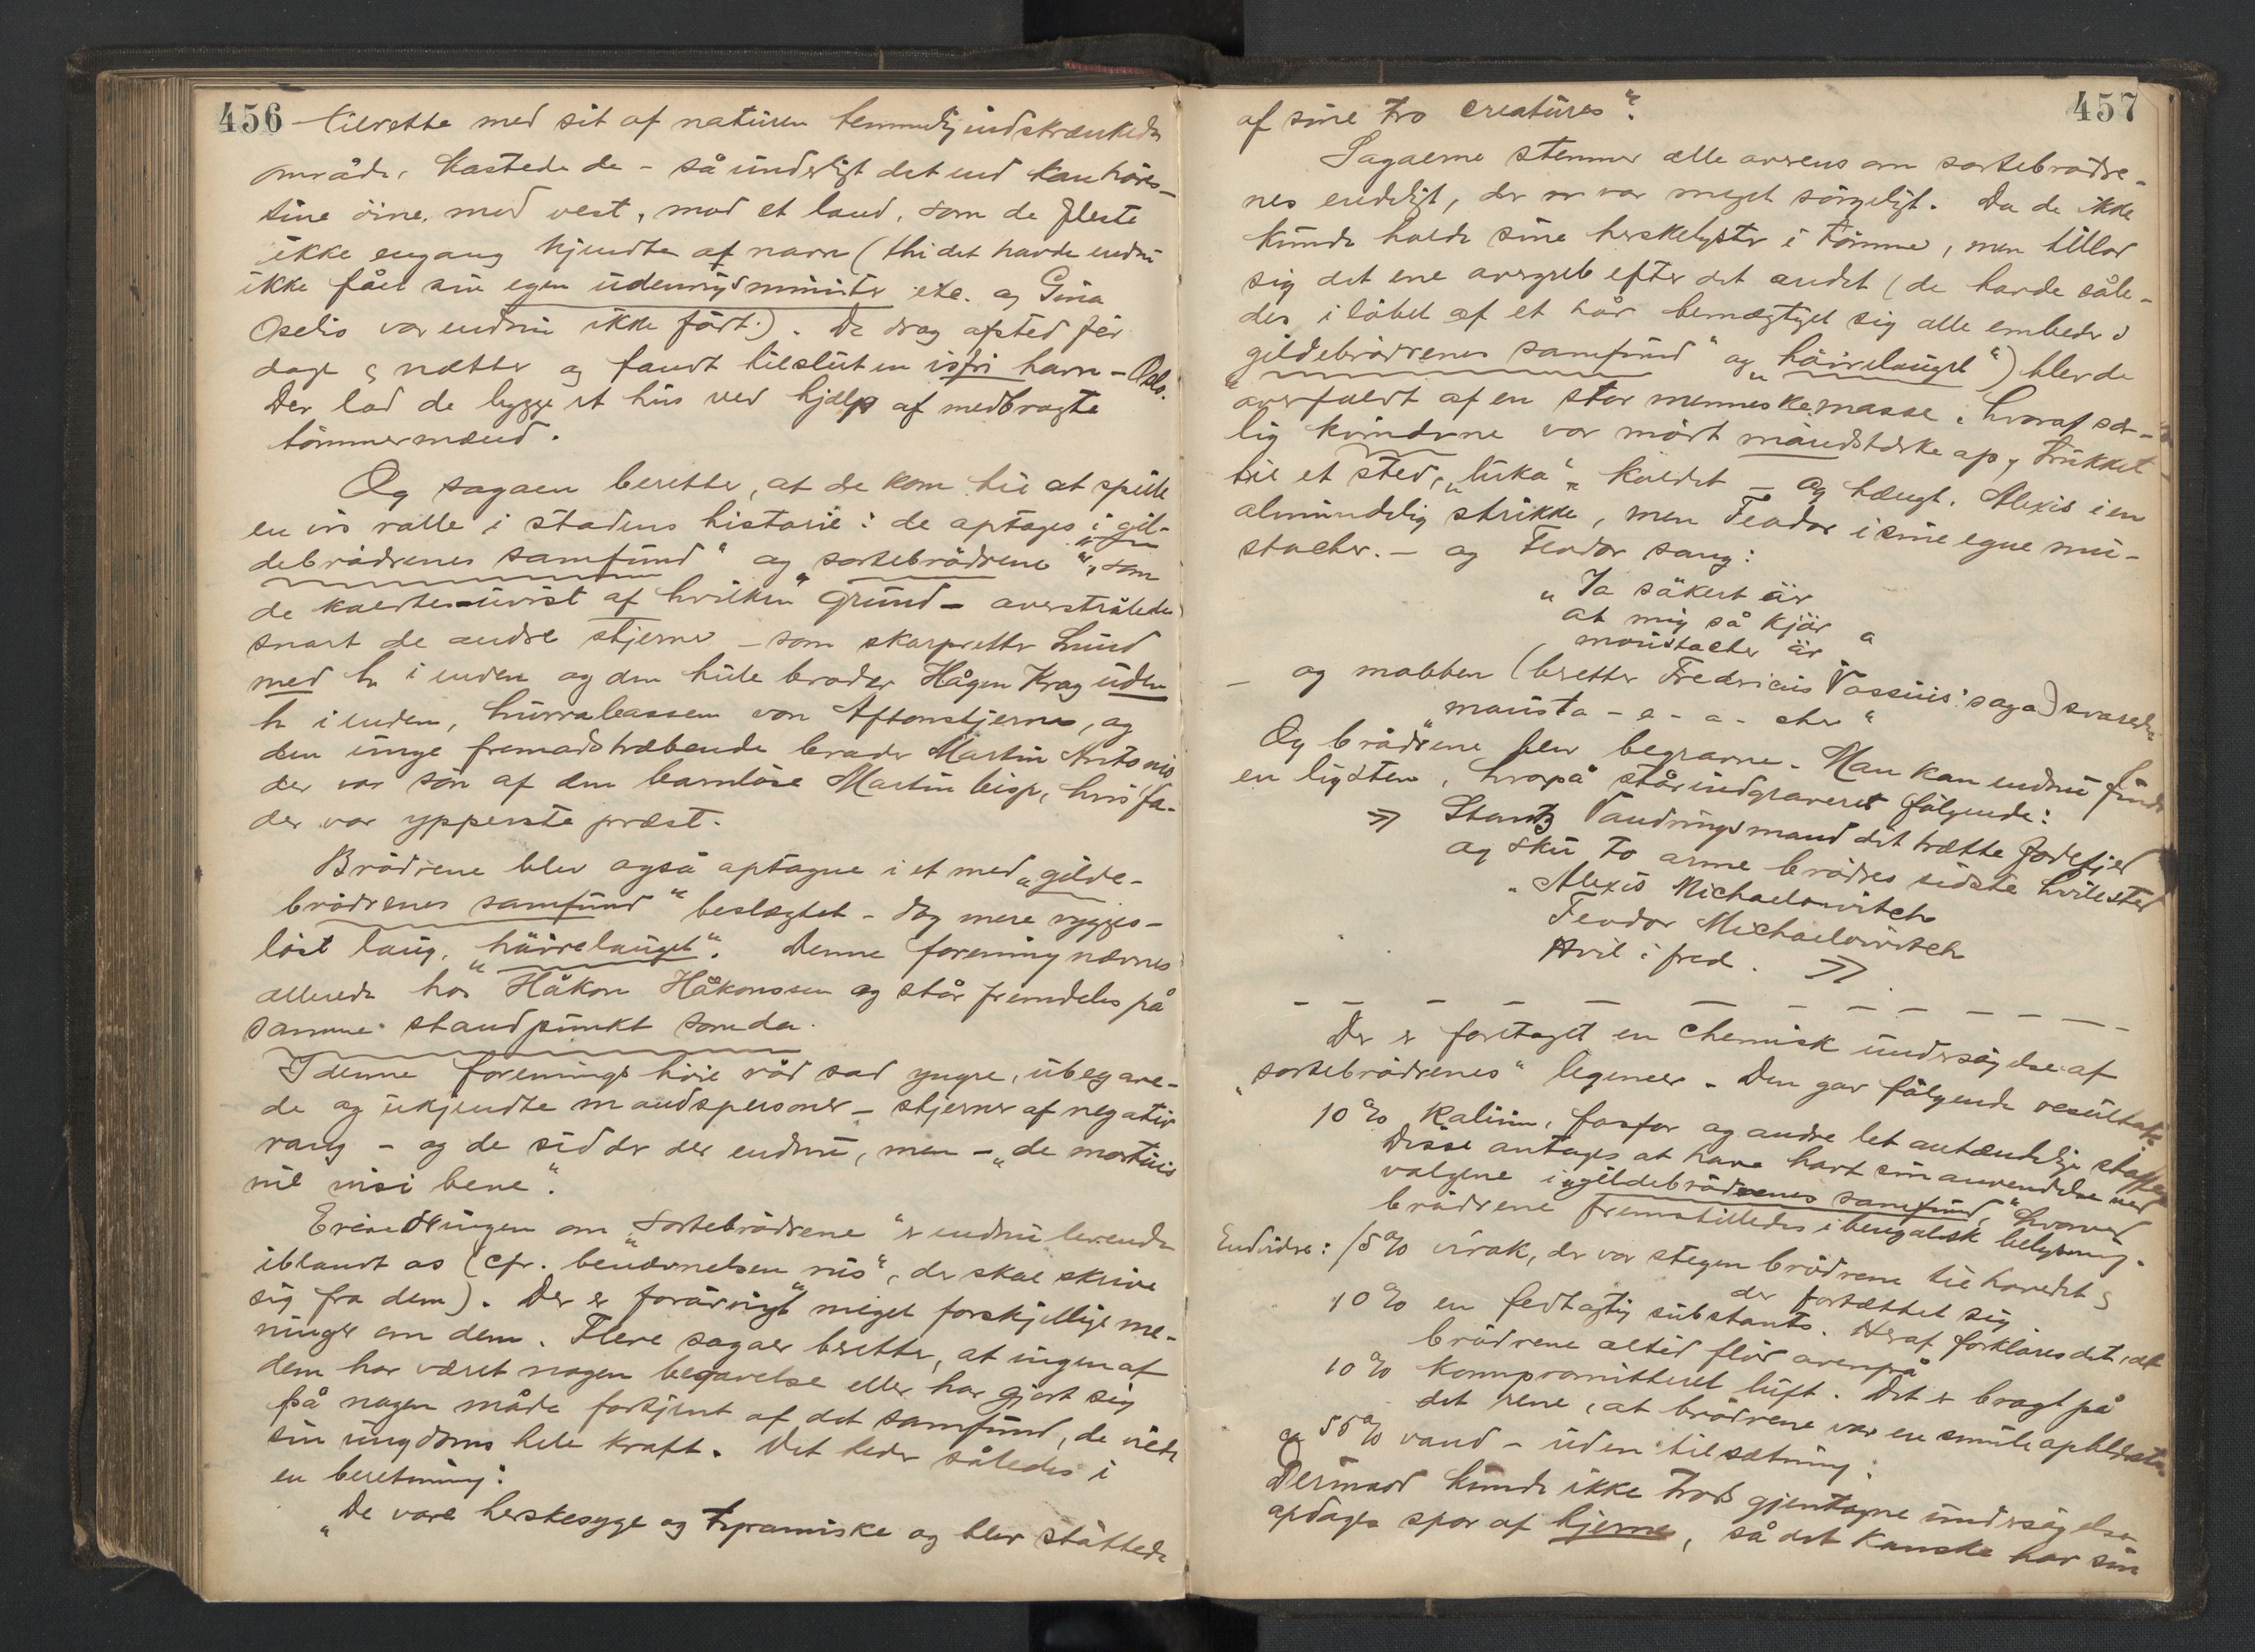 456
tilrette med sit af naturen temmelig indskrænkede
område, kastede de – så underligt det end kan høres –
sine øine mod vest, mod et land, som de fleste
ikke engang kjendte af navn (thi det havde endnu
ikke fået sin egen udenrigsminister etc. og Gina
Oselio var endnu ikke født). De drog afsted fir
dage & nætter og fandt tilslut en isfri havn – Oslo.
Der lod de bygge et hus ved hjælp af medbragte
tømmermænd.
Og sagaen beretter, at de kom til at spille
en vis rolle i stadens historie: de optages i „gil-
debrødrenes samfund“ og „sortebrødrene“, som
de kaldtes – uvist af hvilken grund – overstrålede
snart de andre stjerner – som skarpretter Lund
med h i enden og den hule broder Hågen Krag uden
h i enden, hurrabassen von Aftonstjerna, og
den unge fremadstræbende broder Martin Antonio,
der var søn af den barnløse Martin bisp, hvis fa-
der var ypperste præst.
Brødrene blev også optagne i et med „gilde-
brødrenes samfund“ beslægtet – dog mere rygges-
løst laug, „håirelauget“. Denne forening nævnes
allerede hos Håkon Håkonssen og står fremdeles på
samme standpunkt som da.
I denne forenings høie råd sad yngre, ubegave-
de og ukjendte mandspersoner – stjerner af negativ
rang – og de sidder der endnu, men – „de mortuis
nil nisi bene“.
Erindringen om „sortebrødrene“ er endnu levende
iblandt os (cfr. benævnelsen „rus“, der skal skrive
sig fra dem). Der er forøvrigt meget forskjellige me-
ninger om dem. Flere sagaer beretter, at ingen af
dem har været nogen begavelse eller har gjort sig
på nogen måde fortjent af det samfund, de viede
sin ungdoms hele kraft. Det heder således i
en beretning:
„De vare herskesyge og tyranniske og blev støttede
457
af sine tro creatures“.
Sagaerne stemmer alle overens om sortebrødre-
nes endeligt, der var meget sørgeligt. Da de ikke
kunde holde sine herskelyster i tømme, men tillod
sig det ene overgreb efter det andet (de havde såle-
des i løbet af et år bemægtiget sig alle embeder i
„gildebrødrenes samfund“ og „håirelauget“) blev de
overfaldt af en stor menneskemasse, hvoraf sær-
lig kvinderne var mødt mandstærke op, trukket
til et sted, „luka“ kaldet – og hængt. Alexis i en
almindelig strikke, men Feodor i sine egne mu-
stacher. – og Feodor sang:
„Ja säkert är
at mig så kjär
moustacher är“
– og mobben (beretter Fredricus Vossius' saga) svarede
„mousta – a – a – cher“
Og brødrene blev begravne. Man kan endnu finde
en ligsten, hvorpå står indgraveret følgende:
Stands Vandringsmand dit trætte fodefjed
og sku to arme brødres sidste hvilested
Alexis Michaelowitch
Feodor Michaelowitch
Hvil i fred.
Der er foretaget en chemisk undersøgelse af
„sortebrødrenes“ legemer. Den gav følgende resultat:
10 % kalium, fosfor og andre let antændelige stoffer.
Disse antages at have havt sin anvendelse ved
valgene i „gildebrødrenes samfund“, hvorved
brødrene fremstilledes i bengalisk belysning.
Endvidere: 15 % virak, der var stegen brødrene til hovedet &
der fortættet sig
10 % en fedtagtig substants. Heraf forklares det, at
brødrene altid flød ovenpå
10 % komprimitteret luft. Det er bragt på
det rene, at brødrene var en smule opblæste
og 55 % vand – uden tilsætning.
Derimod kunde ikke trods gjentagne undersøgelser
opdages spor af hjerne, så det kanske har sin